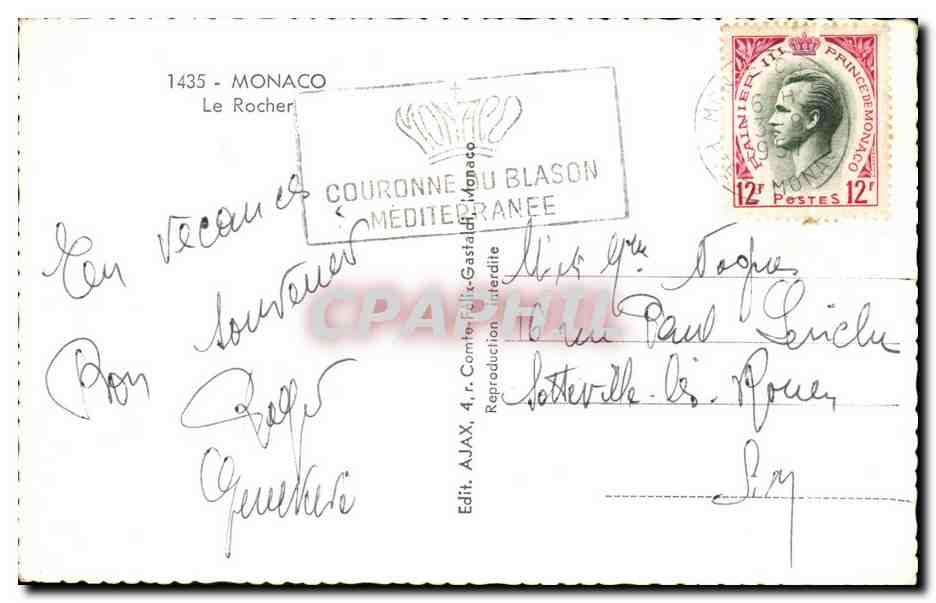 1435 - MONACO
Le Rocher
MONACO
COURONNE DU BLASON
MÉDITERRANÉE
RAINIER III PRINCE DE MONACO
12F POSTES 12F
MONA
En vacances
Bon souvenir
Roger
Geneviève
Edit. AJAX, 4, r. Comte-Félix-Gastaldi, Monaco
Reproduction interdite
CPAPHIL
rue Paul
Sotteville-lès-Rouen